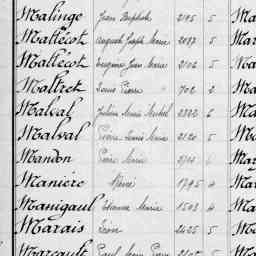 Malinge Jean Baptiste 2195 5 Ma
Mallécot Auguste Joseph Marie 2087 5 Mar
Mallécot Eugène Jean Marie 2102 5 Ma
Maltret Louis Pierre 702 2 Ma
Malval Julien Marie Michel 2322 6 Ma
Malval Pierre Marie 2120 5 Ma
Mandon Pierre Marie 6 May
Manière Marie 1795 4 Ma
Manigault Etienne Marie 1503 4 Mar
Marais Léon 2425 5 Ma
Marcault Paul Pierre 5 Ma